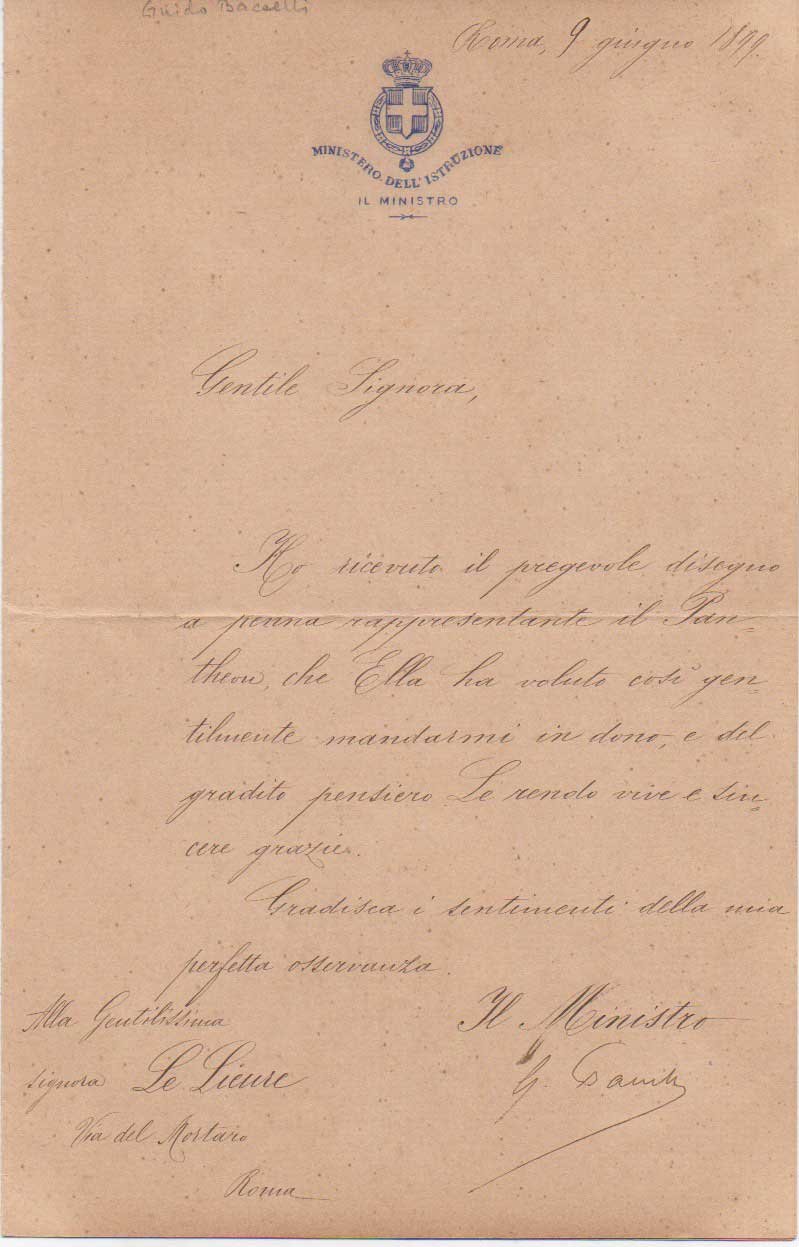 Guido Baccelli
Roma, 9 giugno 1899.
MINISTERO DELL'ISTRUZIONE
IL MINISTRO
Gentile Signora,
Ho ricevuto il pregevole disegno
a penna rappresentante il Pan-
theon, che Ella ha voluto così gen-
tilmente mandarmi in dono, e del
gradito pensiero Le rendo vive e sin-
cere grazie.
Gradisca i sentimenti della mia
perfetta osservanza.
Il Ministro
G.
Alla Gentilissima
signora Le Lieure
Via del Mortaro
Roma